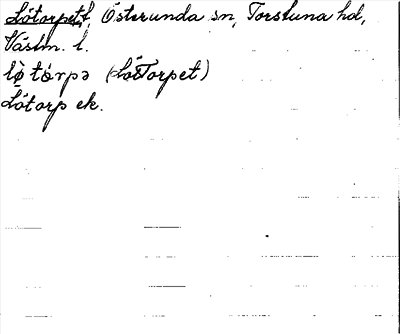 Lötorpet, Österunda sn, Torstuna hd,
Västm. l.
lö̀ tórpə (Lötorpet)
Lötorp ek.